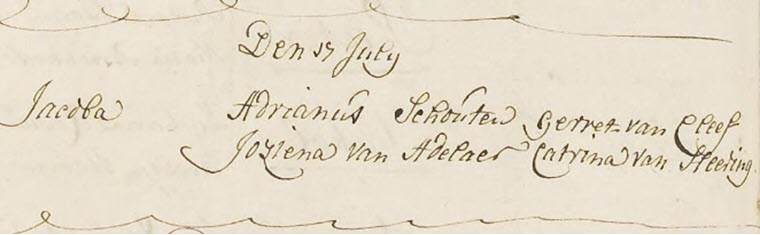 Den 17 July
Jacoba Adrianús Schoúten Gerret van Cleef
Joziena van Adelaer Catrina van Heering